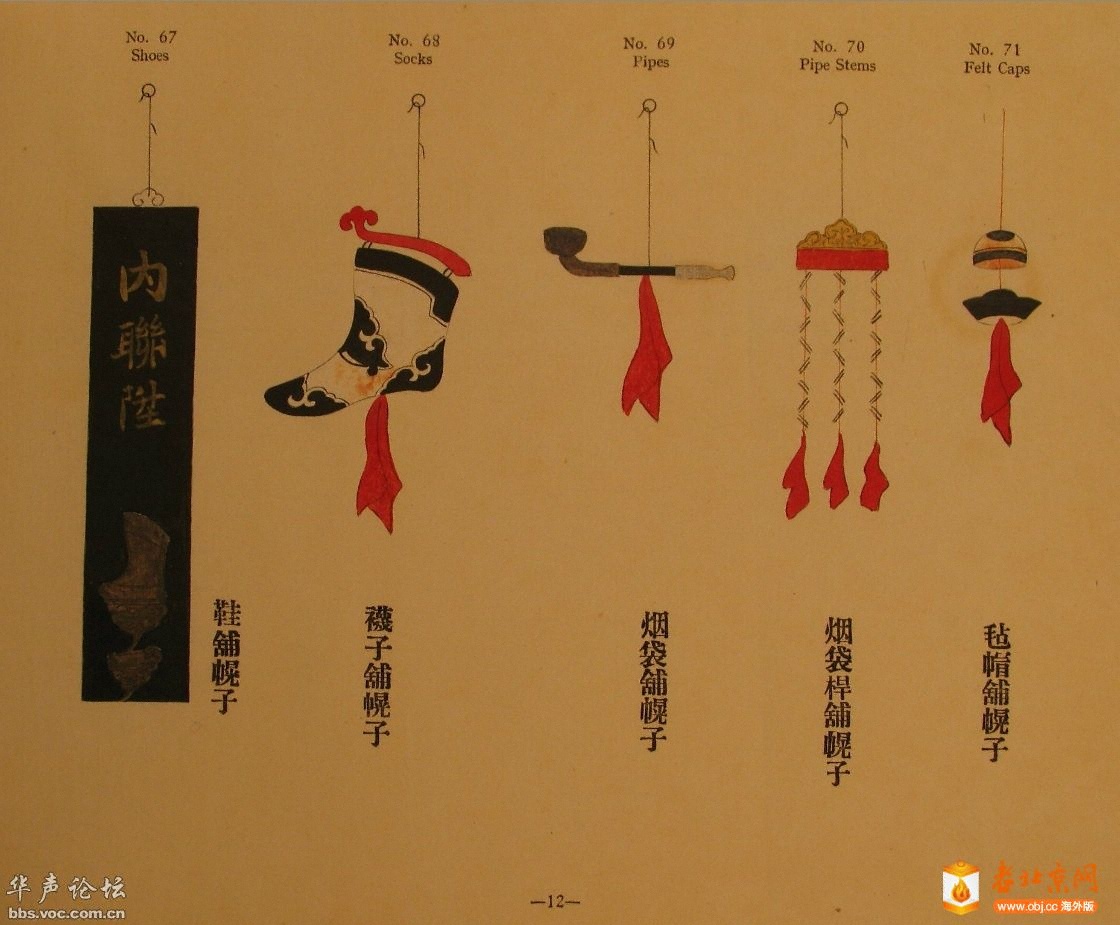 No. 67
Shoes
No. 68
Socks
No. 69
Pipes
No. 70
Pipe Stems
No. 71
Felt Caps
內聯陞
鞋舖幌子
襪子舖幌子
烟袋舖幌子
烟袋桿舖幌子
毡帽舖幌子
—12—
华声论坛
bbs.voc.com.cn
老北京网
www.obj.cc 海外版